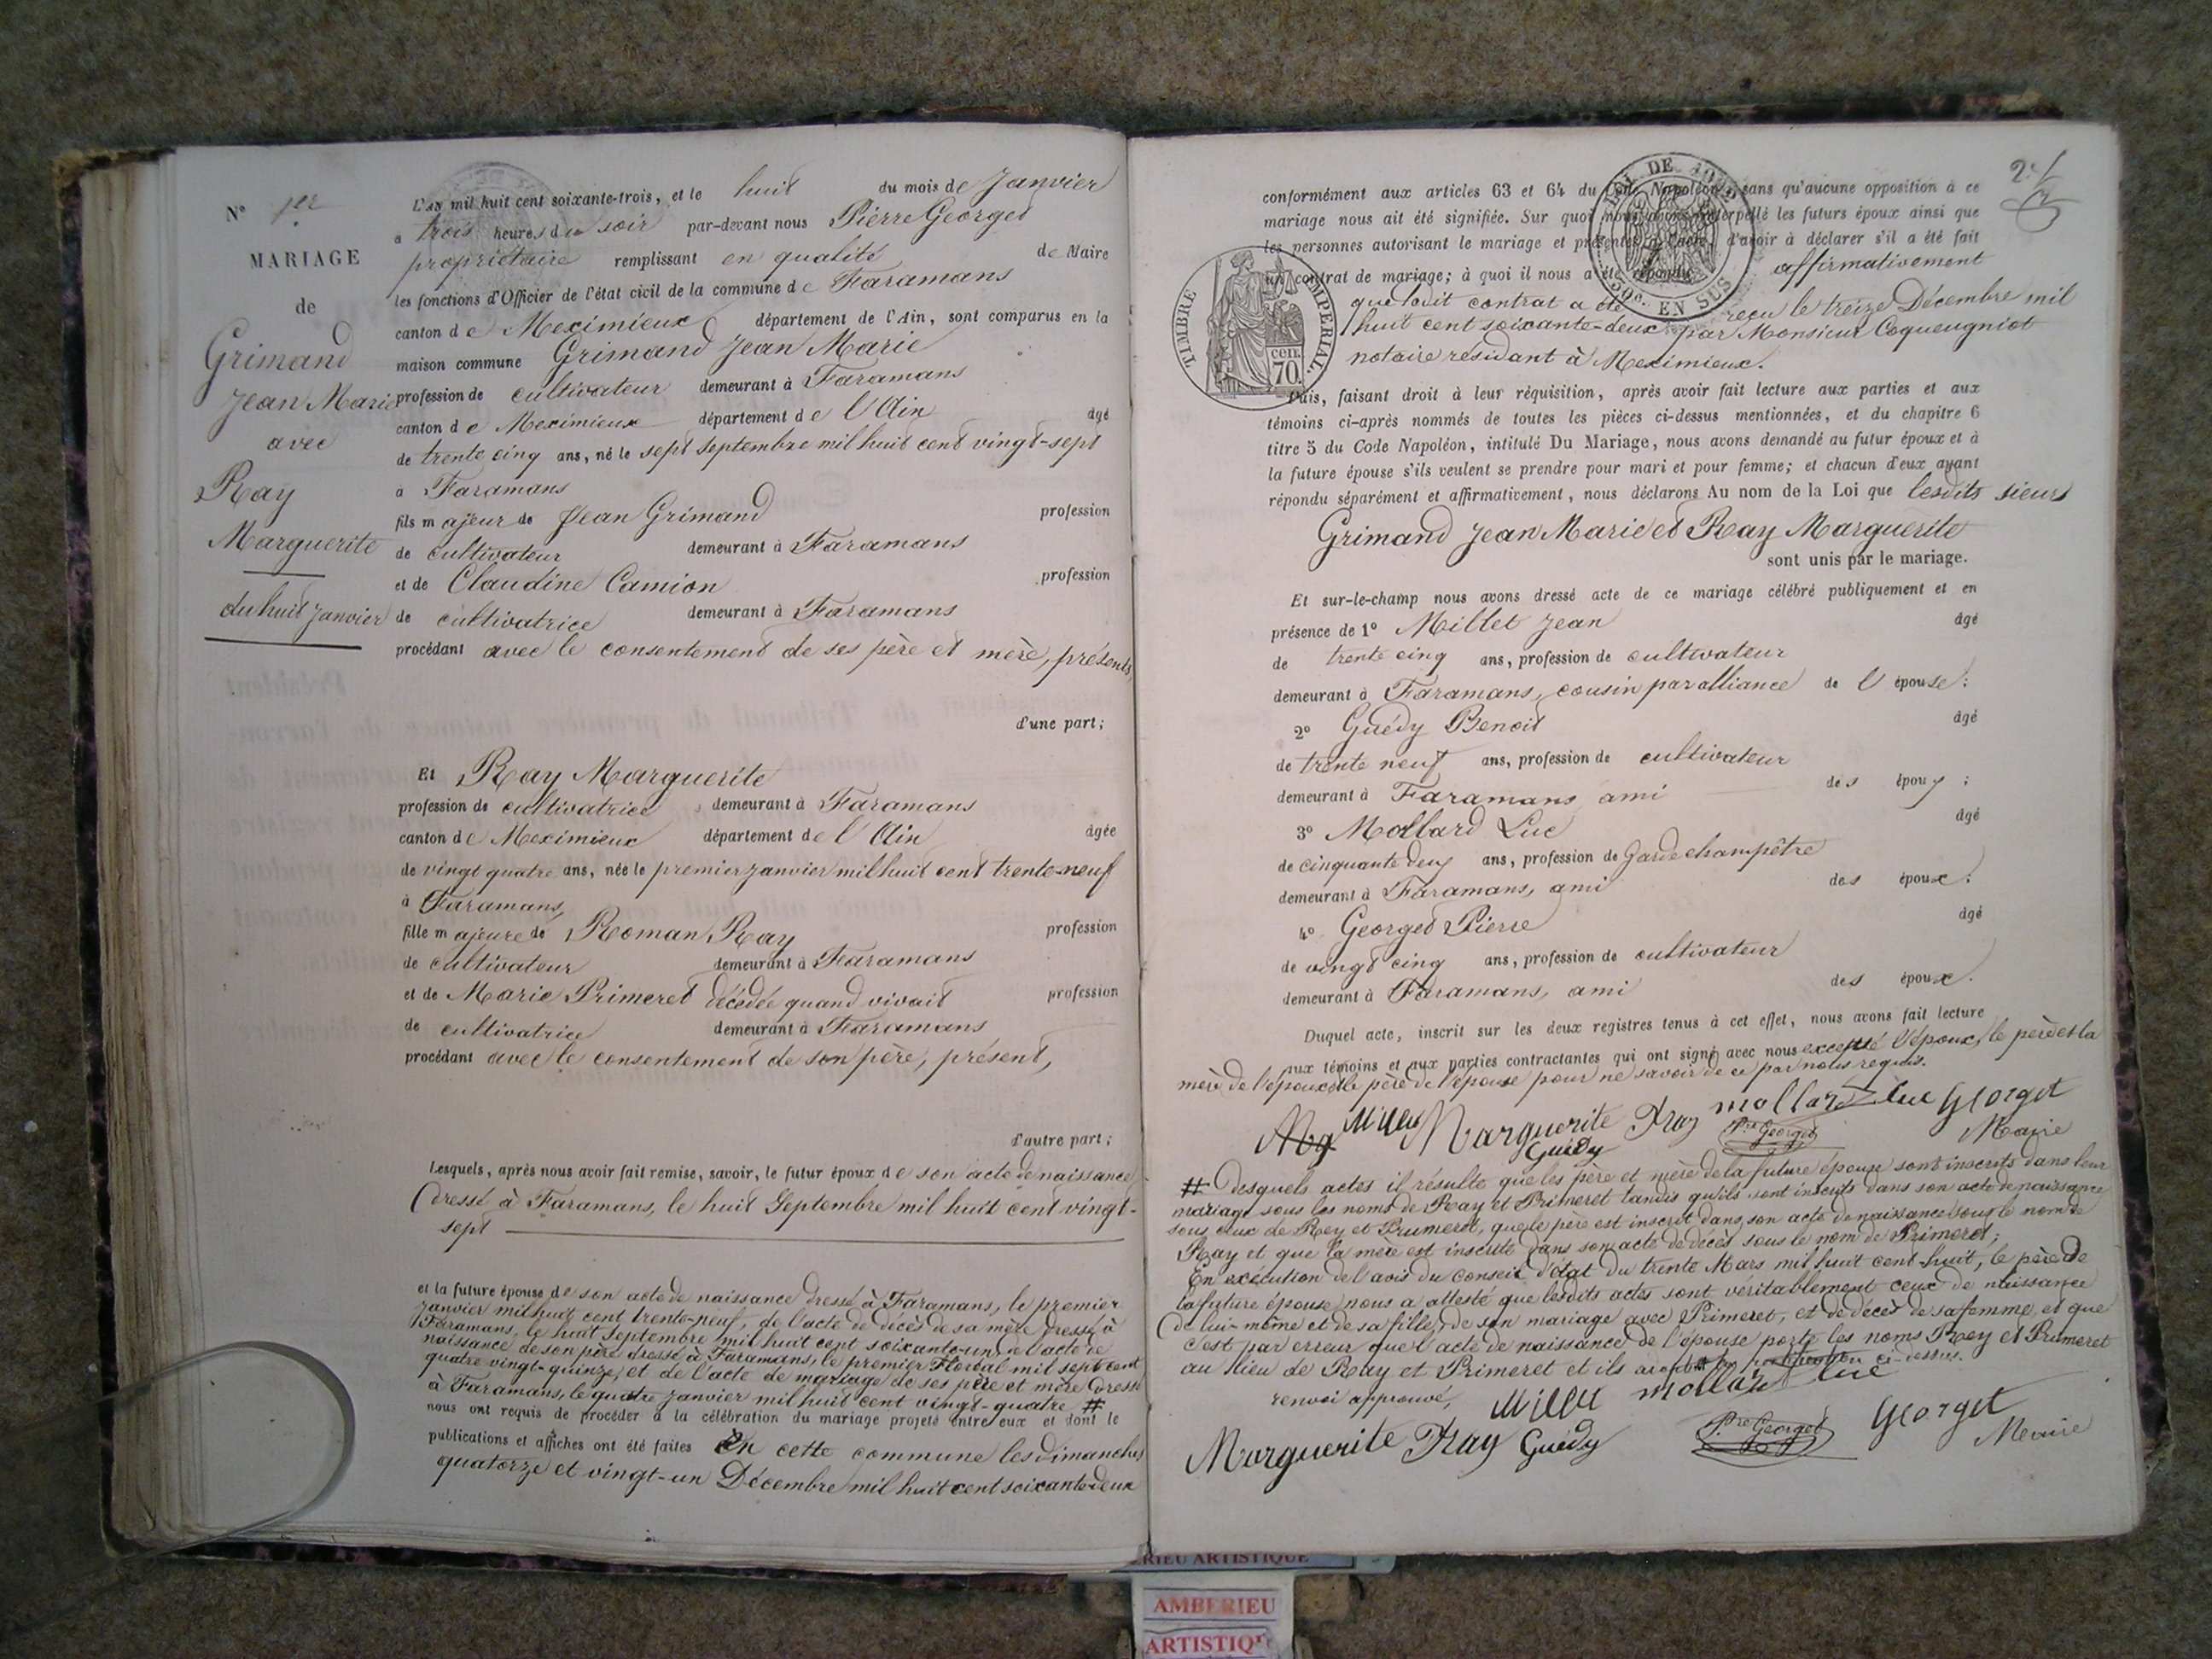 N° 1er
MARIAGE
de
Grimand
Jean Marie
avec
Ray
Marguerite
du huit Janvier
L'an mil huit cent soixante-trois, et le huit du mois de Janvier
a trois heures du soir par-devant nous Pierre Georges
propriétaire remplissant en qualité de Maire
les fonctions d'Officier de l'état civil de la commune de Faramans
canton de Meximieux département de l'Ain, sont comparus en la
maison commune Grimand Jean Marie
profession de cultivateur demeurant à Faramans
canton de Meximieux département de l'Ain âgé
de trente cinq ans, né le sept septembre mil huit cent vingt-sept
à Faramans
fils majeur de Jean Grimand profession
de cultivateur demeurant à Faramans
et de Claudine Camion profession
de cultivatrice demeurant à Faramans
procédant avec le consentement de ses père et mère, présents,
d'une part;
Et Ray Marguerite
profession de cultivatrice demeurant à Faramans
canton de Meximieux département de l'Ain âgée
de vingt quatre ans, née le premier janvier mil huit cent trente-neuf
à Faramans,
fille majeure de Roman Ray profession
de cultivateur demeurant à Faramans
et de Marie Primeret décédée quand vivait profession
de cultivatrice demeurant à Faramans
procédant avec le consentement de son père, présent,
d'autre part;
Lesquels, après nous avoir fait remise, savoir, le futur époux de son acte de naissance
dressé à Faramans, le huit Septembre mil huit cent vingt-
sept
et la future épouse de son acte de naissance dressé à Faramans, le premier
janvier mil huit cent trente-neuf, de l'acte de décès de sa mère dressé à
Faramans, le huit Septembre mil huit cent soixante-un, de l'acte de
naissance de son père dressé à Faramans, le premier Floréal mil sept cent
quatre vingt-quinze, et de l'acte de mariage de ses père et mère dressé
à Faramans, le quatre janvier mil huit cent vingt-quatre #
nous ont requis de procéder à la célébration du mariage projeté entre eux et dont le
publications et affiches ont été faites en cette commune les dimanches
quatorze et vingt-un Décembre mil huit cent soixante-deux
2
conformément aux articles 63 et 64 du Code Napoléon, sans qu'aucune opposition à ce
mariage nous ait été signifiée. Sur quoi nous avons interpellé les futurs époux ainsi que
les personnes autorisant le mariage et présentes à l'acte, d'avoir à déclarer s'il a été fait
un contrat de mariage; à quoi il nous a été répondu affirmativement
que ledit contrat a été reçu le treize Décembre mil
huit cent soixante-deux par Monsieur Coqueugniot
notaire résidant à Meximieux.
TIMBRE IMPERIAL
cen. 70.
50c. EN SUS
Puis, faisant droit à leur réquisition, après avoir fait lecture aux parties et aux
témoins ci-après nommés de toutes les pièces ci-dessus mentionnées, et du chapitre 6
titre 5 du Code Napoléon, intitulé Du Mariage, nous avons demandé au futur époux et à
la future épouse s'ils veulent se prendre pour mari et pour femme; et chacun d'eux ayant
répondu séparément et affirmativement, nous déclarons Au nom de la Loi que lesdits sieurs
Grimand Jean Marie et Ray Marguerite
sont unis par le mariage.
Et sur-le-champ nous avons dressé acte de ce mariage célébré publiquement et en
présence de 1° Millet Jean âgé
de trente cinq ans, profession de cultivateur
demeurant à Faramans, cousin par alliance de l'épouse;
2° Guédy Benoit âgé
de trente neuf ans, profession de cultivateur
demeurant à Faramans ami des époux;
3° Mollard Luc âgé
de cinquante deux ans, profession de garde champêtre
demeurant à Faramans, ami des époux;
4° Georges Pierre âgé
de vingt cinq ans, profession de cultivateur
demeurant à Faramans, ami des époux.
Duquel acte, inscrit sur les deux registres tenus à cet effet, nous avons fait lecture
aux témoins et aux parties contractantes qui ont signé avec nous excepté l'époux, le père et la
mère de l'époux et le père de l'épouse pour ne savoir de ce par nous requis.
Millet Marguerite Ray mollard luc Georget
Guédy Pre Georget Maire
# Desquels actes il résulte que les père et mère de la future épouse sont inscrits dans leur
mariage sous les noms de Ray et Primeret tandis qu'ils sont inscrits dans son acte de naissance
sous ceux de Rey et Prumeret, que le père est inscrit dans son acte de naissance sous le nom de
Ray et que la mère est inscrite dans son acte de décès sous le nom de Primeret;
En exécution de l'avis du Conseil d'état du trente Mars mil huit cent huit, le père de
la future épouse nous a attesté que lesdits actes sont véritablement ceux de naissance
de lui-même et de sa fille, de son mariage avec Primeret, et de décès de sa femme, et que
c'est par erreur que l'acte de naissance de l'épouse porte les noms Rey et Prumeret
au lieu de Ray et Primeret et ils ci-dessus.
renvoi approuvé, Millet mollard luc
Marguerite Ray Guédy Pre Georget Georget
Maire
AMBERIEU
ARTISTIQUE